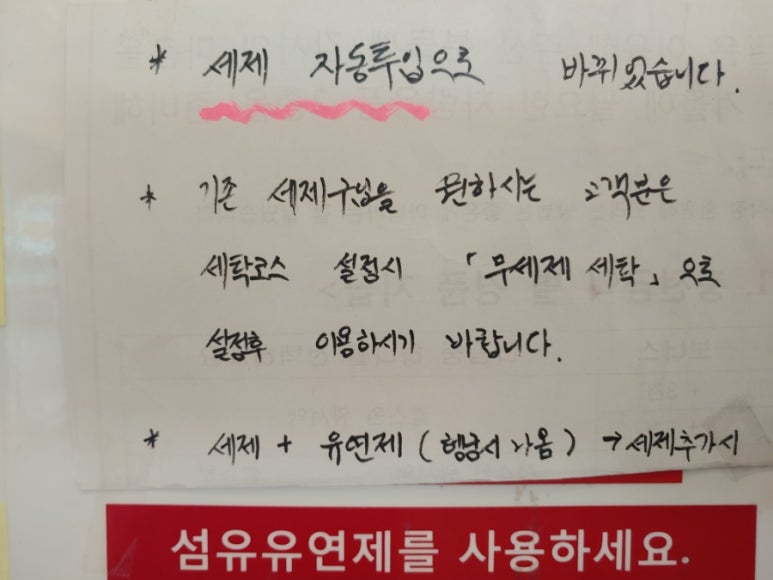 * 세제 자동투입으로 바뀌었습니다.
* 기존 세제구입을 원하시는 고객분은
세탁코스 설정시 「무세제 세탁」으로
설정후 이용하시기 바랍니다.
* 세제 + 유연제 (헹굼서 나옴) → 세제추가시
섬유유연제를 사용하세요.